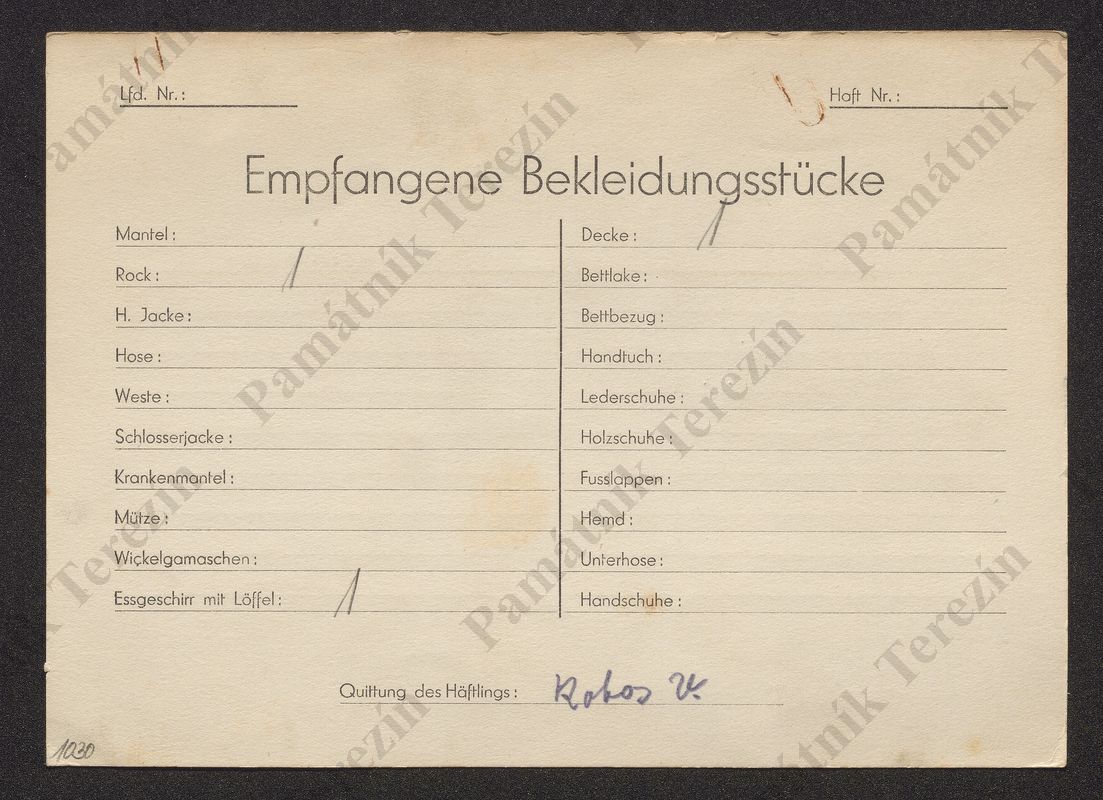 Lfd. Nr.:
Haft Nr.:
Empfangene Bekleidungsstücke
Mantel:
Rock: 1
H. Jacke:
Hose:
Weste:
Schlosserjacke:
Krankenmantel:
Mütze:
Wickelgamaschen:
Essgeschirr mit Löffel: 1
Decke: 1
Bettlake:
Bettbezug:
Handtuch:
Lederschuhe:
Holzschuhe:
Fusslappen:
Hemd:
Unterhose:
Handschuhe:
Quittung des Häftlings: V.
1030
Památník Terezín
Památník Terezín
Památník Terezín
Památník Terezín